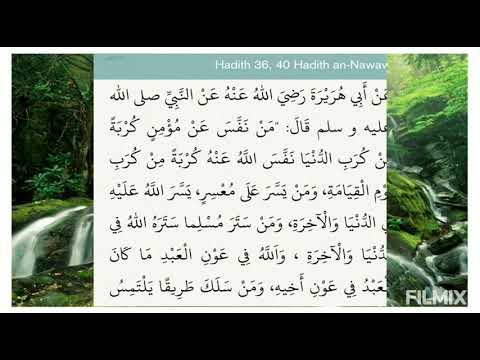 Hadith 36, 40 Hadith an-Nawaw
عَنْ أَبِي هُرَيْرَةَ رَضِيَ اللهُ عَنْهُ عَنْ النَّبِيِّ صلى الله
عليه و سلم قَالَ: "مَنْ نَفَّسَ عَنْ مُؤْمِنٍ كُرْبَةً
مِنْ كُرَبِ الدُّنْيَا نَفَّسَ اللَّهُ عَنْهُ كُرْبَةً مِنْ كُرَبِ
يَوْمِ الْقِيَامَةِ، وَمَنْ يَسَّرَ عَلَى مُعْسِرٍ، يَسَّرَ اللَّهُ عَلَيْهِ
فِي الدُّنْيَا وَالْآخِرَةِ، وَمَنْ سَتَرَ مُسْلِما سَتَرَهُ اللهُ فِي
الدُّنْيَا وَالْآخِرَةِ ، وَاَللَّهُ فِي عَوْنِ الْعَبْدِ مَا كَانَ
الْعَبْدُ فِي عَوْنِ أَخِيهِ، وَمَنْ سَلَكَ طَرِيقًا يَلْتَمِسُ
FILMIX